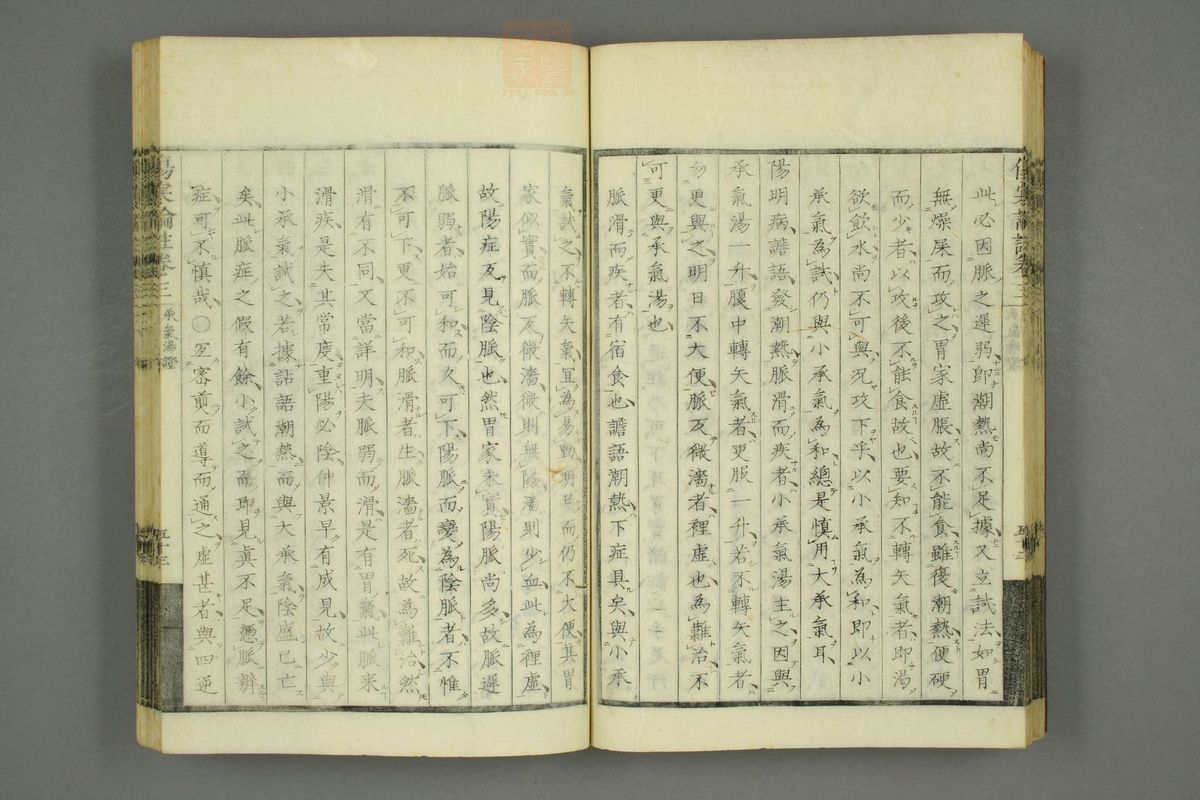 此必因脈之遲弱即潮熱尚不足據又立試法如胃
無燥屎而攻之胃家虛脹故不能食雖復潮熱便硬
而少者以攻後不能食故也要知不轉矢氣者即渴
欲飲水尚不可與況攻下乎以小承氣為和即以小
承氣為試仍與小承氣為和總是慎用大承氣耳
陽明病譫語發潮熱脈滑而疾者小承氣湯主之因與
承氣湯一升腹中轉矢氣者更服一升若不轉矢氣者
勿更與之明日不大便脈反微濇者裡虛也為難治不
可更與承氣湯也
脈滑而疾者有宿食也譫語潮熱下症具矣與小承
氣試之不轉矢氣冝為易動明日而仍不大便其胃
家似實而脈反微濇微則無陽濇則少血此為裡虛
故陽症反見陰脈也然胃家未實陽脈尚多故脈遲
脈弱者始可和而久可下陽脈而變為陰脈者不惟
不可下更不可和脈滑者生脈濇者死故為難治然
滑有不同又當詳明夫脈弱而滑是有胃氣此脈来
滑疾是失其常度重陽必陰仲景早有成見故少與
小承氣試之若據譫語潮熱而與大承氣陰盛已亡
矣此脈症之假有餘小試之而即見真不足憑脈辨
症可不慎哉〇宻審煎而導而通之虛甚者與四逆
傷寒論註卷三 承氣湯證